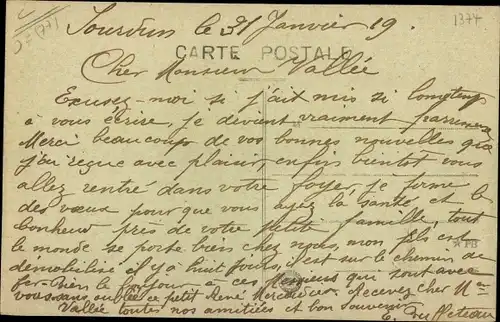 Sourdun le 31 Janvier 19. 1374
CARTE POSTALE
Cher Monsieur Vallée
Excusez-moi si j'ait mis si longtemps
à vous écrire, je devient vraiment
Merci beaucoup de vos bonnes nouvelles que
j'ai reçue avec plaisir, enfin bientôt vous
allez rentré dans votre foyer, je forme
des vœux pour que vous ayez la santé et le
bonheur près de votre petite famille, tout
le monde se porte bien chez nous, mon fils est
démobilisé il y a huit jours, il est sur le chemin de
fer.
vous sans oublié ce petit René Recevez cher Mr
Vallée toutes nos amitiées et bon souvenir